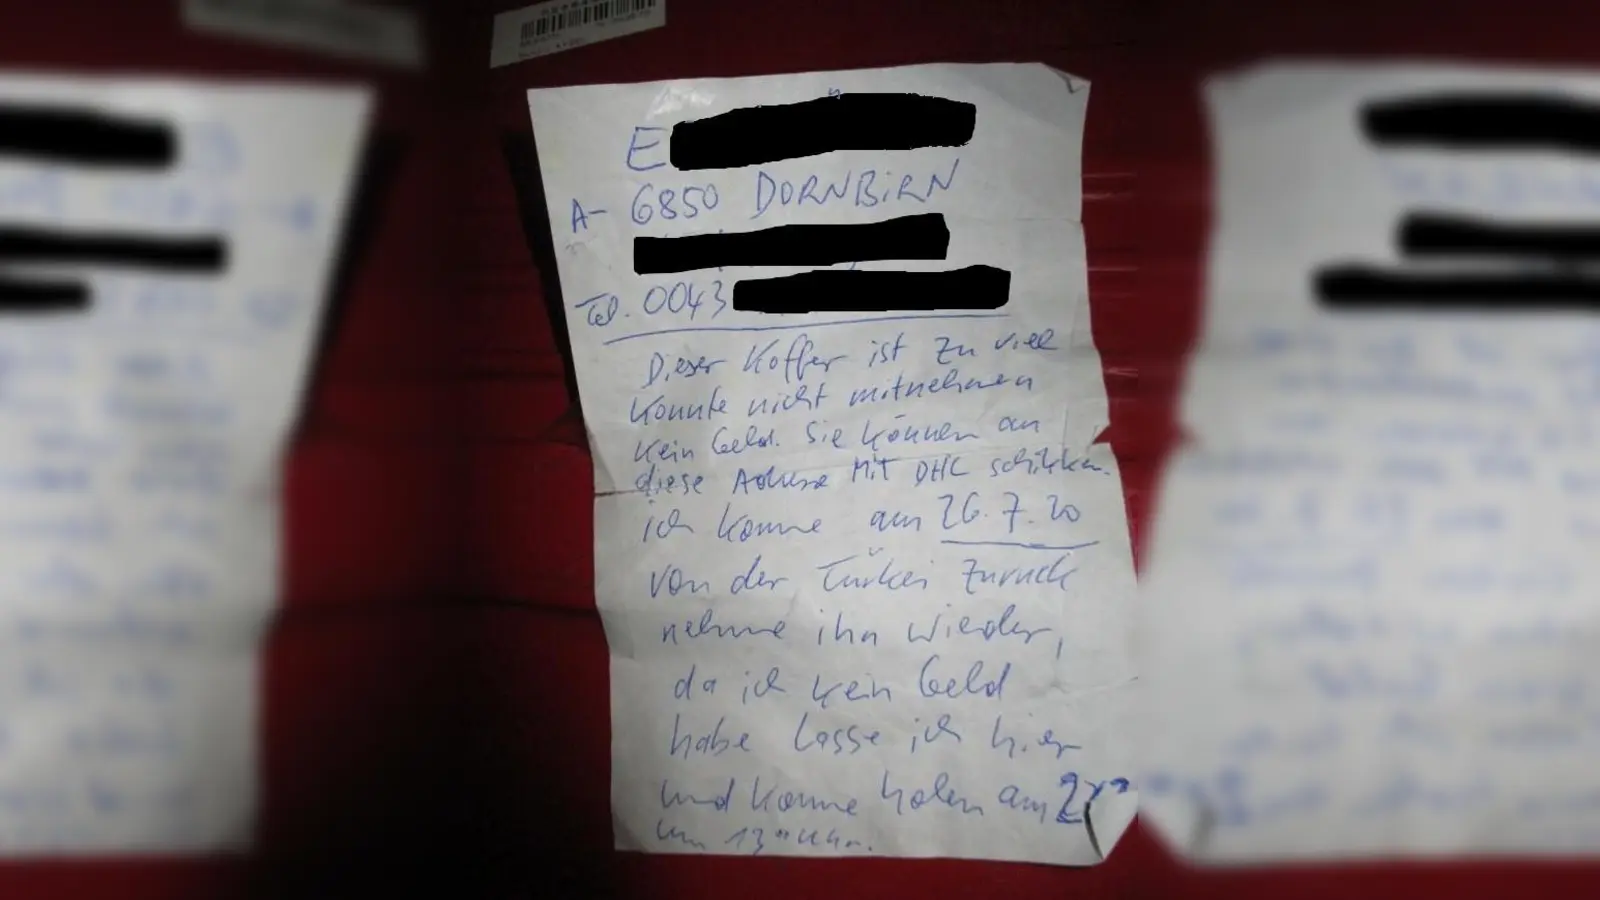 E
A- 6850 DORNBiRN
Tel. 0043
Dieser Koffer ist zu viel
konnte nicht mitnehmen
kein Geld. Sie können an
diese Adresse MiT DHL schikken.
ich komme am 26.7.20
von der Türkei zurück
nehme ihn wieder,
da ich kein Geld
habe lasse ich hier
und komme holen am
um 13 Uhr.